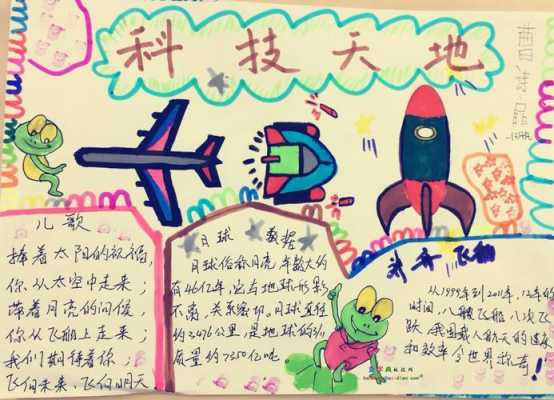 科技天地
儿歌
捧着太阳的祝福,
你从太空中走来;
带着月亮的问候,
你从飞船上走来;
我们期待着你;
飞向未来、飞向明天
月球 数据
月球俗称月亮,年 大约
有46亿年,它与地球形影
不离,关系密切,月球直径
约3476公里,是地球的3/11
质量约7350亿吨
飞船
从1999年到2011年,12年的
时间,八艘飞船,八次飞
跃,我国载人航天的速度
和效率令世界 奇!